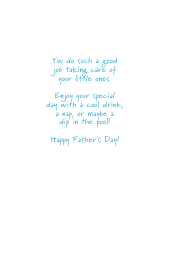 You do such a good
job taking care of
your little ones.
Enjoy your special
day with a cool drink,
a nap, or maybe a
dip in the pool!
Happy Father's Day!